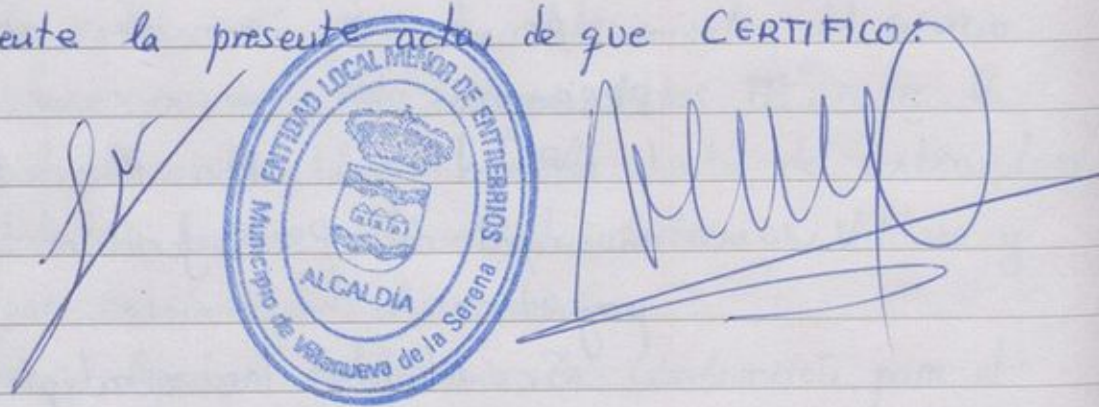 la presente acta, de que CERTIFICO:
ENTIDAD LOCAL MENOR DE ENTRERRIOS
ALCALDÍA
Municipio de Villanueva de la Serena